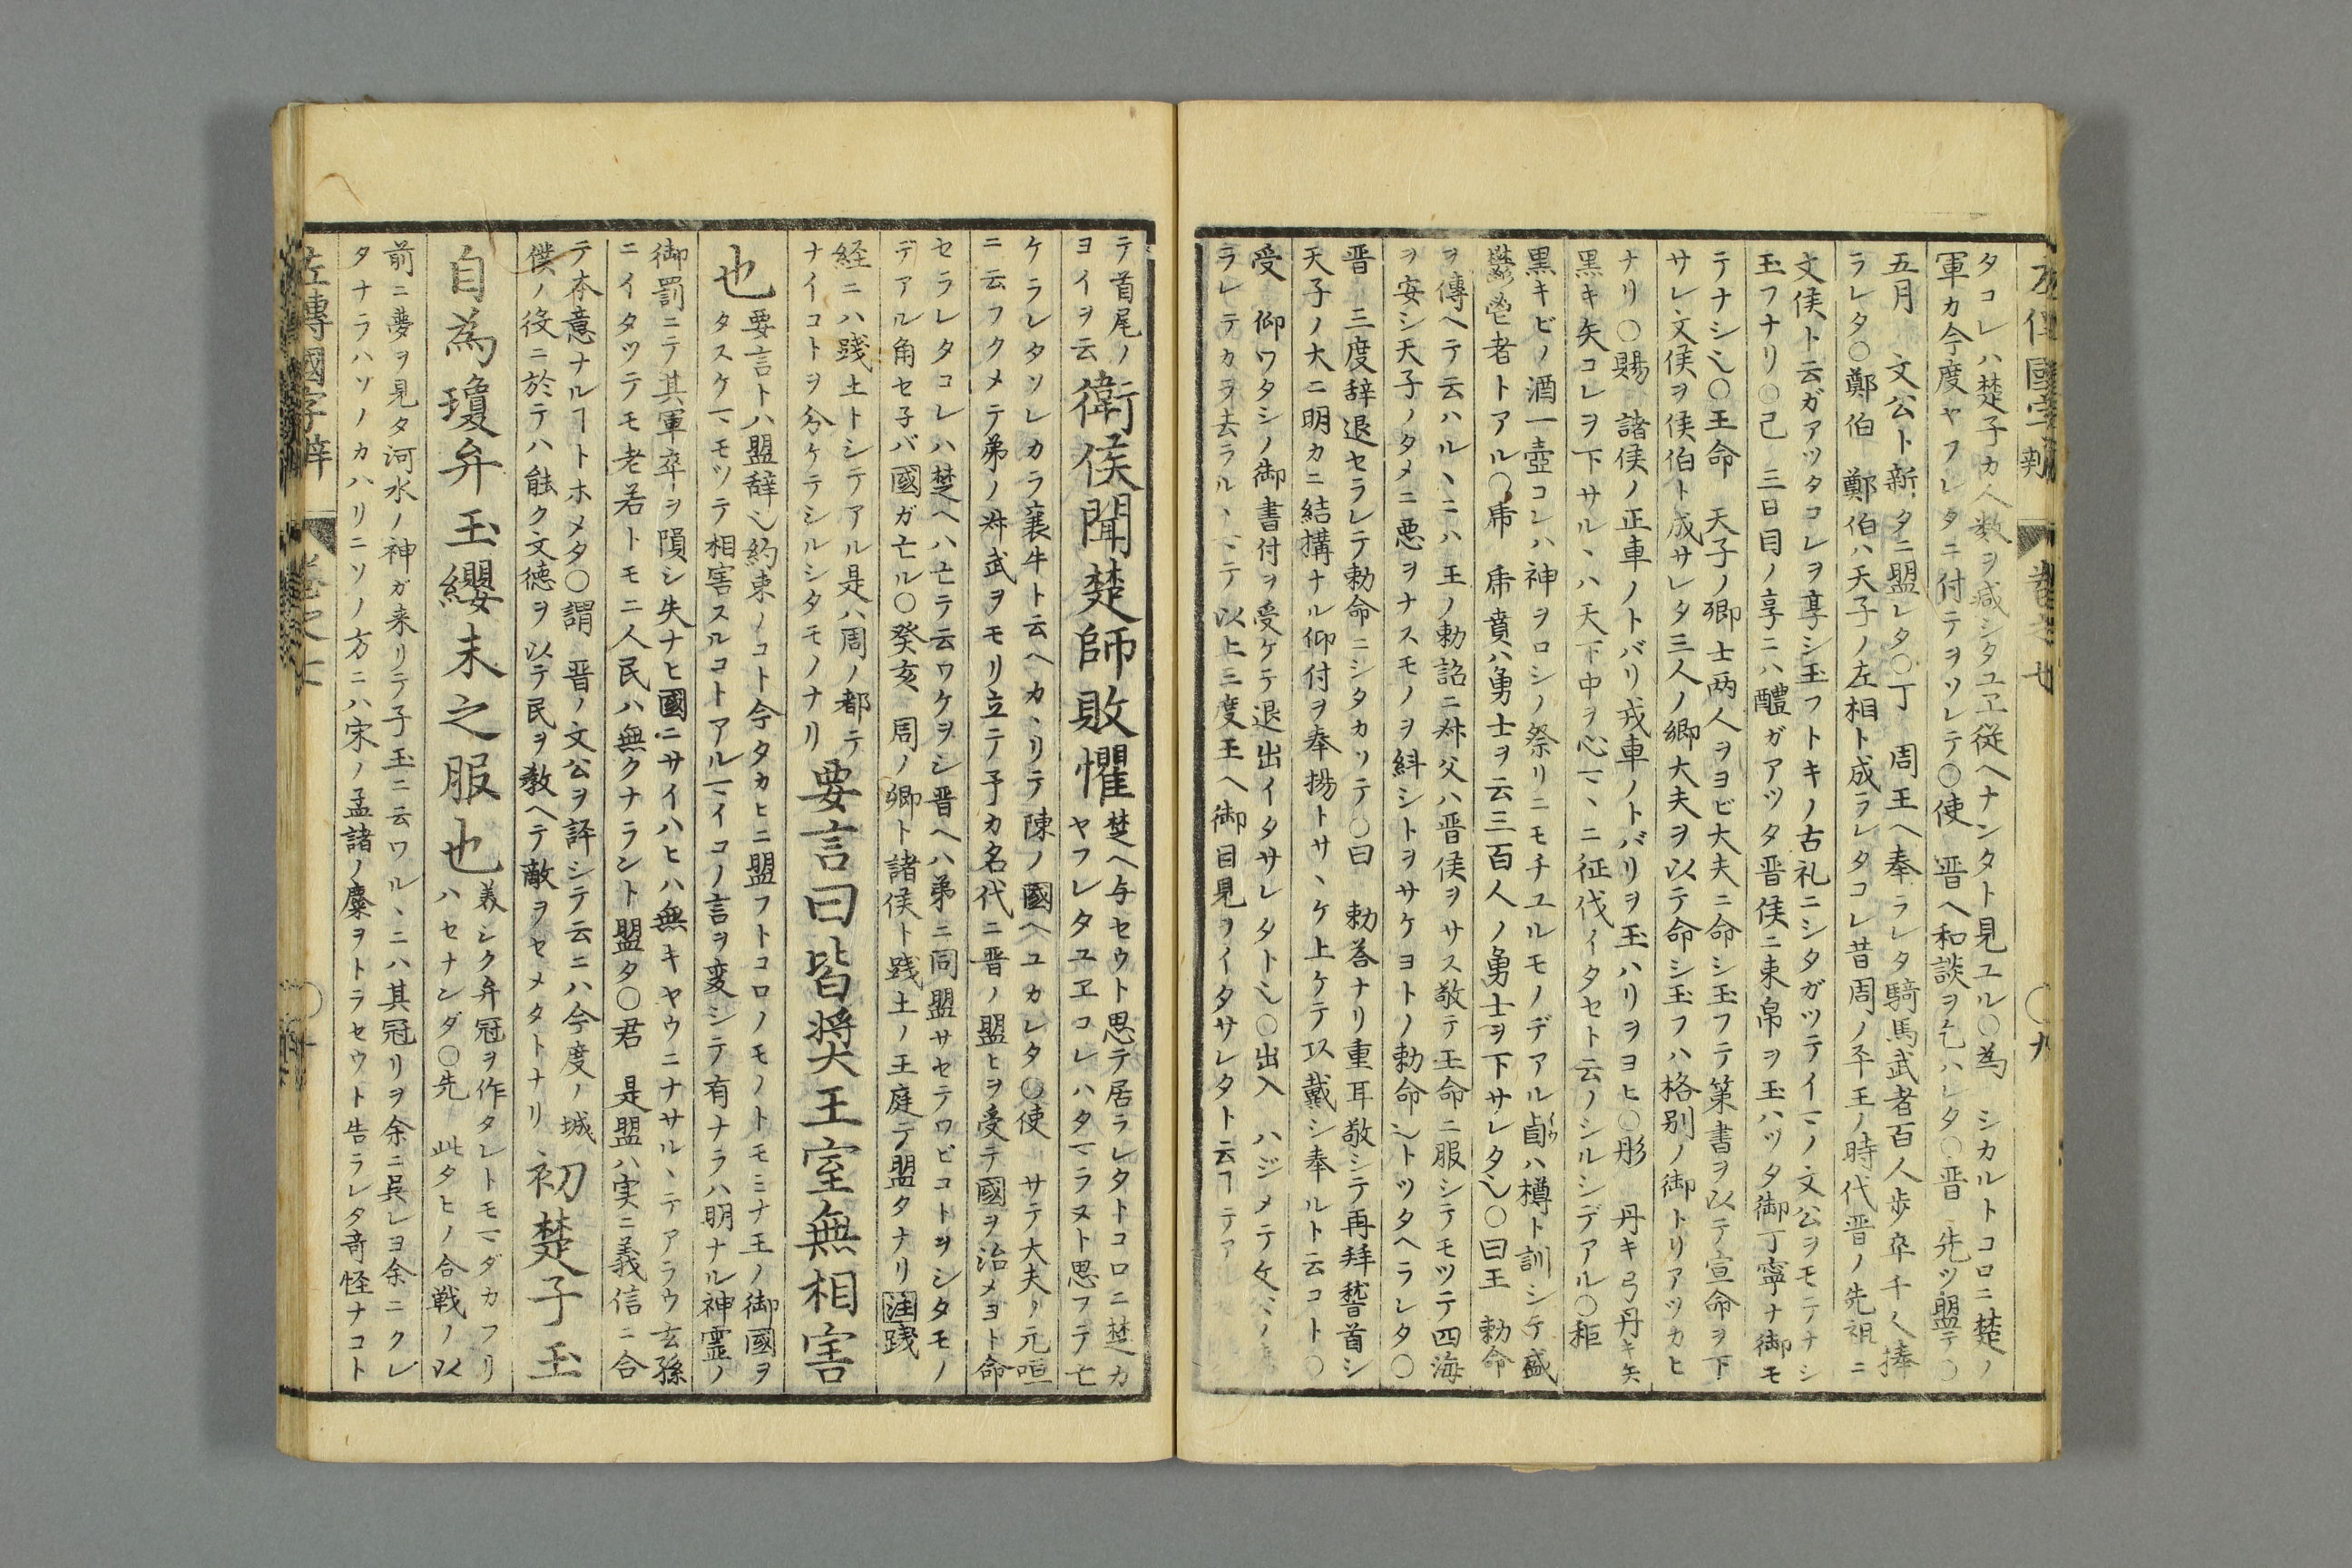 左傳國字辨
タコレハ楚子カ人数ヲ減シタユヱ従ヘナンタト見ユル〇為　シカルトコロニ楚ノ
軍カ今度ヤフレタニ付テヲソレテ〇使　晋ヘ和談ヲ乞ハレタ〇晋　先ツ盟テ〇
五月　文公ト新タニ盟レタ〇丁　周王ヘ奉ラレタ騎馬武者百人歩卒千人捧
ラレタ〇鄭伯　鄭伯ハ天子ノ左相ト成ラレタコレ昔周ノ平王ノ時代晋ノ先祖ニ
文侯ト云ガアツタコレヲ享シ玉フトキノ古礼ニシタガツテイマノ文公ヲモテナシ
玉フナリ〇己　三日目ノ享ニハ醴ガアツタ晋侯ニ束帛ヲ玉ハツタ御丁寧ナ御モ
テナシ也〇王命　天子ノ卿士両人ヲヨビ大夫ニ命シ玉フテ策書ヲ以テ宣命ヲ下
サレ文侯ヲ侯伯ト成サレタ三人ノ卿大夫ヲ以テ命シ玉フハ格別ノ御トリアツカヒ
ナリ〇賜　諸侯ノ正車ノトバリ戎車ノトバリヲ玉ハリヲヨヒ〇彤　丹キ弓丹キ矢
黒キ矢コレヲ下サルヽハ天下中ヲ心マヽニ征伐イタセト云ノシルシデアル〇秬
黒キビノ酒一壺コレハ神ヲロシノ祭リニモチユルモノデアル卣ハ樽ト訓シテ盛
鬱鬯者トアル〇虎　虎賁ハ勇士ヲ云三百人ノ勇士ヲ下サレタ也〇曰王　勅命
ヲ傳ヘテ云ハルヽニハ王ノ勅詔ニ叔父ハ晋侯ヲサス敬テ王命ニ服シテモツテ四海
ヲ安シ天子ノタメニ悪ヲナスモノヲ糾シトヲサケヨトノ勅命也トツタヘラレタ〇
晋　三度辞退セラレテ勅命ニシタカツテ〇曰　勅答ナリ重耳敬シテ再拝稽首シ
天子ノ大ニ明カニ結構ナル仰付ヲ奉揚トサヽケ上ケテ以戴シ奉ルト云コト〇
受　仰ワタシノ御書付ヲ受ケテ退出イタサレタト也〇出入　ハジメテ
ラレテカヲ去ラルヽマテ以上三度王ヘ御目見ヲイタサレタト云ヿテア
テ首尾ノ
ヨイヲ云
衛侯聞楚師敗懼
楚ヘ与セウト思テ居ラレタトコロニ楚カ
ヤフレタユヱコレハタマラヌト思フテ亡
ケラレタソレカラ襄牛ト云ヘカヽリテ陳ノ國ヘユカレタ〇使　サテ大夫ノ元咺
ニ云フクメテ弟ノ叔武ヲモリ立テ子カ名代ニ晋ノ盟ヒヲ受テ國ヲ治メヨト命
セラレタコレハ楚ヘハ亡テ云ワケヲシ晋ヘハ弟ニ同盟サセテワビコトヲシタモノ
デアル角セ子バ國ガ亡ル〇癸亥　周ノ卿ト諸侯ト践土ノ王庭デ盟タナリ注践
経ニハ践土トシテアル是ハ周ノ都テ
ナイコトヲ分ケテシルシタモノナリ
要言曰皆奨王室無相害
也
要言トハ盟辞也約束ノコト今タカヒニ盟フトコロノモノトモミナ王ノ御國ヲ
タスケマモツテ相害スルコトアルマイコノ言ヲ変シテ有ナラハ明ナル神霊ノ
御罰ニテ其軍卒ヲ隕シ失ナヒ國ニサイハヒハ無キヤウニナサルヽテアラウ玄孫
ニイタツテモ老若トモニ人民ハ無クナラント盟タ〇君　是盟ハ実ニ義信ニ合
テ本意ナルヿトホメタ〇謂　晋ノ文公ヲ評シテ云ニハ今度ノ城
僕ノ役ニ於テハ能ク文徳ヲ以テ民ヲ教ヘテ敵ヲセメタトナリ
初楚子玉
自為瓊弁玉纓未之服也
美シク弁冠ヲ作タレトモマダカフリ
ハセナンダ〇先　此タヒノ合戦ノ以
前ニ夢ヲ見タ河水ノ神ガ来リテ子玉ニ云ワルヽニハ其冠リヲ余ニ呉レヨ余ニクレ
タナラハソノカハリニソノ方ニハ宋ノ孟諸ノ麋ヲトラセウト告ラレタ奇怪ナコト
左傳國字辨